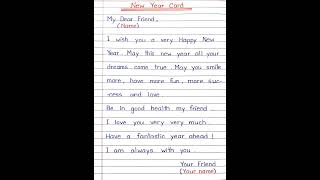 New Year Card
My Dear Friend,
(Name)
I wish you a very Happy New
Year. May this new year all your
dreams come true. May you smile
more, have more fun, more suc-
-cess and love.
Be in good health my friend...
I love you very very much...
Have a fantastic year ahead!
I am always with you...
Your Friend
(Your name)